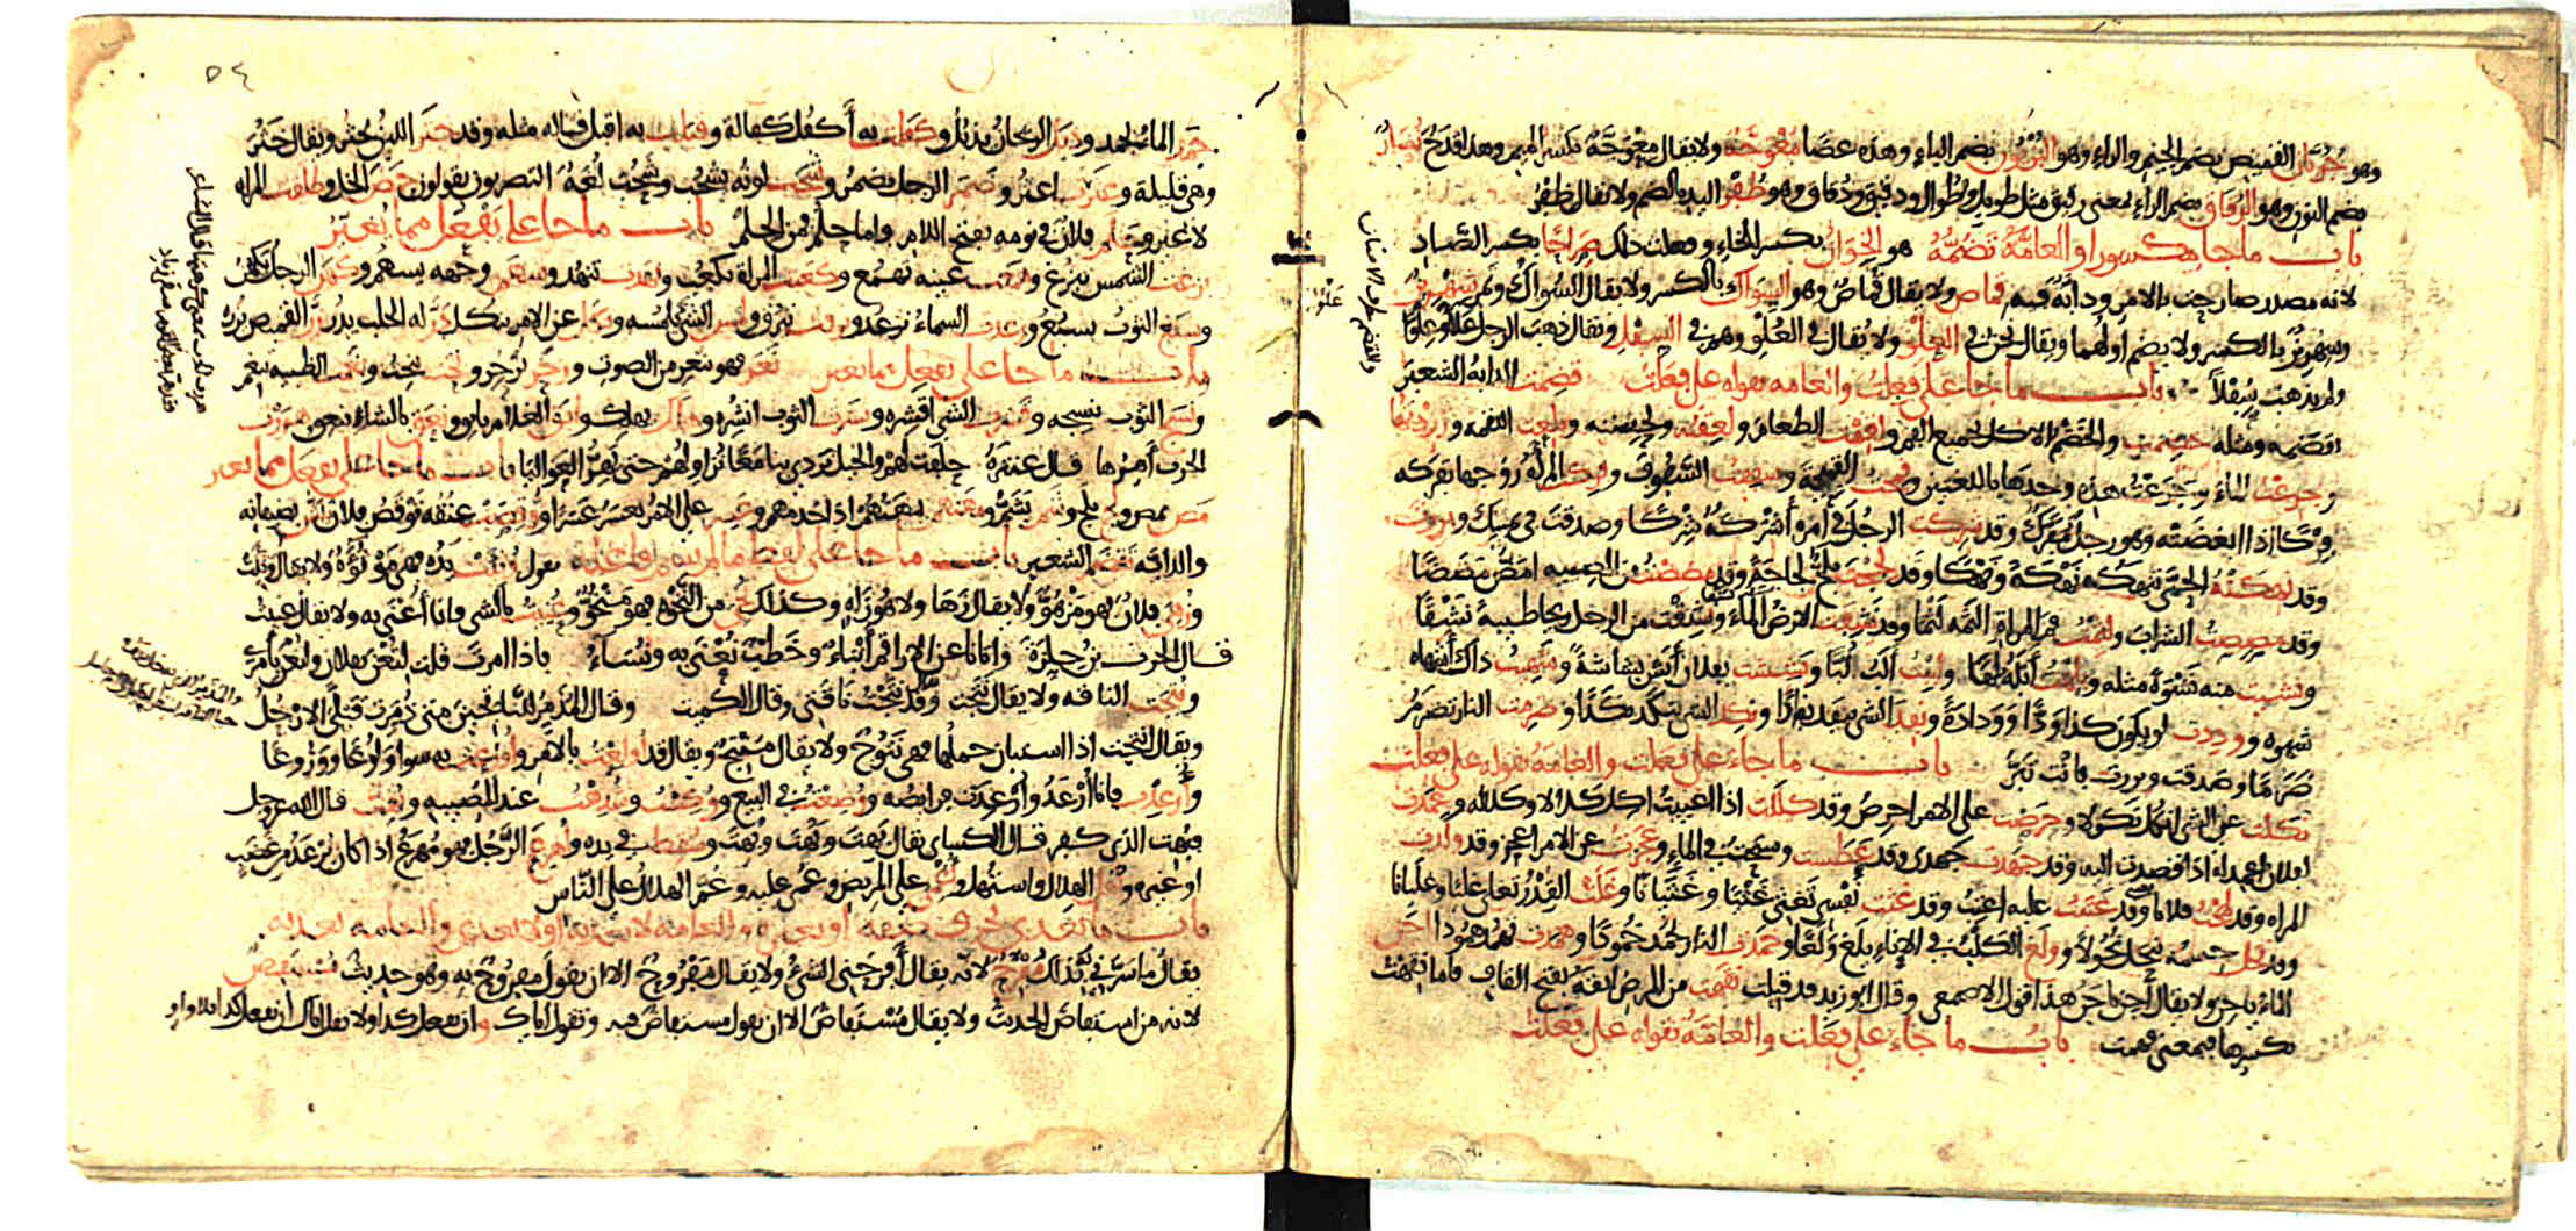 وهو جُرُبّان القميص بضم الجيم والراء وهو البُزْيُون بضم الباء وهذه عصًا مُعْوَجَّة ولا يقال مِعْوَجَّة بكسر الميم وهذا قدح نُضار
بضم النون وهو الرُقاق بضم الراء بمعنى رقيق مثل طويل وطُوال ودقيق ودُقاق وهو ظُفْر اليد بالضم ولا يقال ظِفْر
باب ما جا مكسورا والعامّة تضُمّهُ هو الخِوان بكسر الخاء وفعلت ذلك صِراحًا بكسر الصّاد
لانه مصدر صارحت بالامر ودابّة فيه قِماص ولا يقال قُماص وهو السِواك بالكسر ولا يقال السُواك وتمر سِهْرِيز
وشهريز بالكسر ولا يضم اولهما ويقال نحن في العِلْو ولا يقال في العُلْو وهم في السِفْل ويقال ذهب الرجل عَلاءً وعُلُوًّا
ولم يذهب سُفْلاً باب ما جا على فَعِلْتُ والعامه تقوله على فَعَلْت قضِمت الدابة الشعير
تقضمه ومثله خضِمت والخضم الاكل بجميع الفم ولقِمْت الطعام ولعِقته ولحِسته وبلِعت اللقمة وزرِدْتها
وجرِعْتُ الماء وجَرَعْت هذه وحدها باللغتين وقمِحت القميحة وسففت السَّفُوف وفركت المرأة زوجها تفركه
فِرْكًا اذا ابغضته وهو رجل مفرّك وقد شرِكت الرجل في امره أشْرَكُهُ شِرْكًا وصدقت في يمينك وبررت
وقد نهِكَتْهُ الحمّى تنهكه نَهْكَةً ونَهْكًا وقد لجِجْت تلجّ لجاجةً وقد مضِضْتُ من المصيبه امَضّ مَضَضًا
وقد مصِصتُ الشراب ولثِمْتُ فم المراة الثمه لثمًا وقد نشِفت الارضُ الماءَ ونشِقْت من الرجل ريحا طيبةً نَشْقًا
ونشيت منه نشْوةً مثله وبلِهْت أبله بلهًا ولبِبْتُ ألَبّ لُبًّا وبشِشت بفلان أبَشّ بشاشةً وشهِيت ذاك أشهاه
شهوه ووددت لو يكون كذا وَدًّا ووَدادةً ونفِد الشي ينفد نفادًا ونكِد الشي ينكَد نكَدًا وضرِمت النار تضرمُ
ضَرَمًا وصدقت وبررت فانت تَبَرّ باب ما جاء على فعَلت والعامّة تقوله على فعِلت
نكَلت عن الشي انكُل نكولا وحرَصْت على الامر احرِص وقد كلَلت اذا اعييت اكِلّ كلالا وكلاله وعمَدت
لفلان اعمِد له اذا قصدت اليه وقد جهَدت جهدي وقد عطَست وسبَحتُ في الماء وعجَزتُ عن الامر اعجز وقد ولدت
المراه وقد لمحْتُ فلانا وقد عتَبتُ عليه اعتِبُ وقد غثت نفسي تغثي غَثْيًا وغَثَيانًا وغلَت القِدْرُ تغلي غليًا وغليانا
وقد نحَل جسمه ينحَل نُحُولاً وولَغ الكَلبُ في الاناء يلَغ وَلْغًا وخمَدت النار تخمُد خُمودًا وهمدت تهمد هُمُودا اجن
الماء ياجِن ولا يقال أجِن ياجَن هذا قول الاصمعي وقال ابو زيد قد قيلت نقَهت من المرض انقَه بفتح القاف فاما نقِهْت
بكسرها فبمعنى فهمت باب ما جاء على فعَلت والعامّة تقوله على فَعُلت
جمَد الماءُ يجمد وذبَل الريحانُ يذبُل وكفَلت به أكفُل كفالة وقبَلت به اقبل قباله مثله وقد خثَر اللبن يخثُر ويقال خثُر
وهي قليلة وعثَرت اعثُر وضمَر الرجل يضمُر وشحَب لونه يشحُب وشَحُب لُغَةٌ البصريون يقولون حمَض الخل وطلَقت المراه
لا غير وحلَم فلان في نومه بفتح اللام واما حلُم فمن الحلم باب ما جا على يَفْعُل مما يُغيَّرُ
بزغت الشمس تبزُغ وهمَعت عينه تهمُع وكعَبت المراة تكعُب ونهَدت تنهُد وسهَم وجهه يسهم وكهَن الرجل يكهُن
وسبَغ الثوبُ يسبُغُ ورعَدت السماءُ ترعُد وبرقت تبرُق ولمس الشيَ يلمُسه ونكل عن الامر ينكل ودرّ له الحلب يدُرّ وزرّ القميص يزُرّه
باب ما جا على يفعِل مما يغير نعَر فهو ينعِر من الصوت وزحَر يزْحِر ونحَت ينحِت وبغَمت الظبيه تبغم
ونسَج الثوب ينسِجه وقشَرت الشي اقشِره ونشَرت الثوب انشُره وهلَك يهلِك وابَق الغلام يابِق ونعَق بالشاء ينعِق وهرَرْت
الحرب أهِرّها قال عنترة حلفت لهم والخيل تردي بنا معًا نزاولهم حتى تهِرّوا العواليا باب ما جا على يفعَل مما يغير
مصّ يمَصّ ولجّ يلَجّ وشمّ يشَمّ ونهشهم ينهَشُهُمْ اذا اخذ منهم وعسِر على الامر يعسَر عَسَرًا
والدابة تقضَم الشعير باب ما جا على لفظ ما لم يسم فاعله تقول وُثِئَتْ يدُه فهي موْثُوْءَة ولا يقال وثِئت
وزُهِي فلان فهو مَزْهُوّ ولا يقال زَها ولا هو زاهٍ وكذلك نُخِي من النَّخْوه فهو مَنْخُوّ وعُنيت بالشي وانا أُعْنَى به ولا يقال عنيت
قال الحرث بن حلزة واتانا عن الاراقم أنْباءٌ وخَطْبٌ نُعْنَى به ونُسَاءُ فاذا امرت قلت لتُعْن بفلان ولتعن بأمري
ونُتِجت الناقه ولا يقال نَتَجت وقد نَتَجْتُ ناقتي وقال الكميت وقال المُذَمِّر للنّاتجين متى ذُمّرت قبلي الارجُلُ
ويقال انتجت اذا استبان حملها فهي نَتُوْجٌ ولا يقال مُنْتِجٌ ويقال قد أُولِعْتُ بالامر وأُوزِعت به سوا وَلُوعًا ووَزُوعًا
وأُرعِدت فانا أُرْعَدُ وارْعِدَت فرائصه ووُضِعْتُ في البيع ووُكِسْتُ وشُدِهْتُ عند المصيبه وبُهِتّ قال الله عز وجل
فبُهت الذي كفر قال الكسائي يقال بَهِتَ وبُهِتَ وبَهُتَ وسُقِط في يده وأُهرِعَ الرَّجُلُ فهو مُهرَعٌ اذا كان يُرعَدُ من غضب
او غيره وأُهِلّ الهلال واستُهِلّ وأُغْمِي على المريض وغُمي عليه وغُمّ الهلالُ على النّاس
باب ما يتعدى بحرف صفه او بغيره والعامة لا تعديه او لا يعدى والعامه تعديه
يقال ما سَرّني بذلك مُفْرِحٌ لانه يقال أفرحني الشيءُ ولا يقال مَفْرُوحٌ الا ان تقول مفروح به وهو حديث مُسْتَفِيض
لانه من استفاض الحديث ولا يقال مُسْتفاضٌ الا ان تقول مستفاض فيه وتقول اياك وان تفعل كذا ولا يقال اياك أن تفعل كذا بلا واو